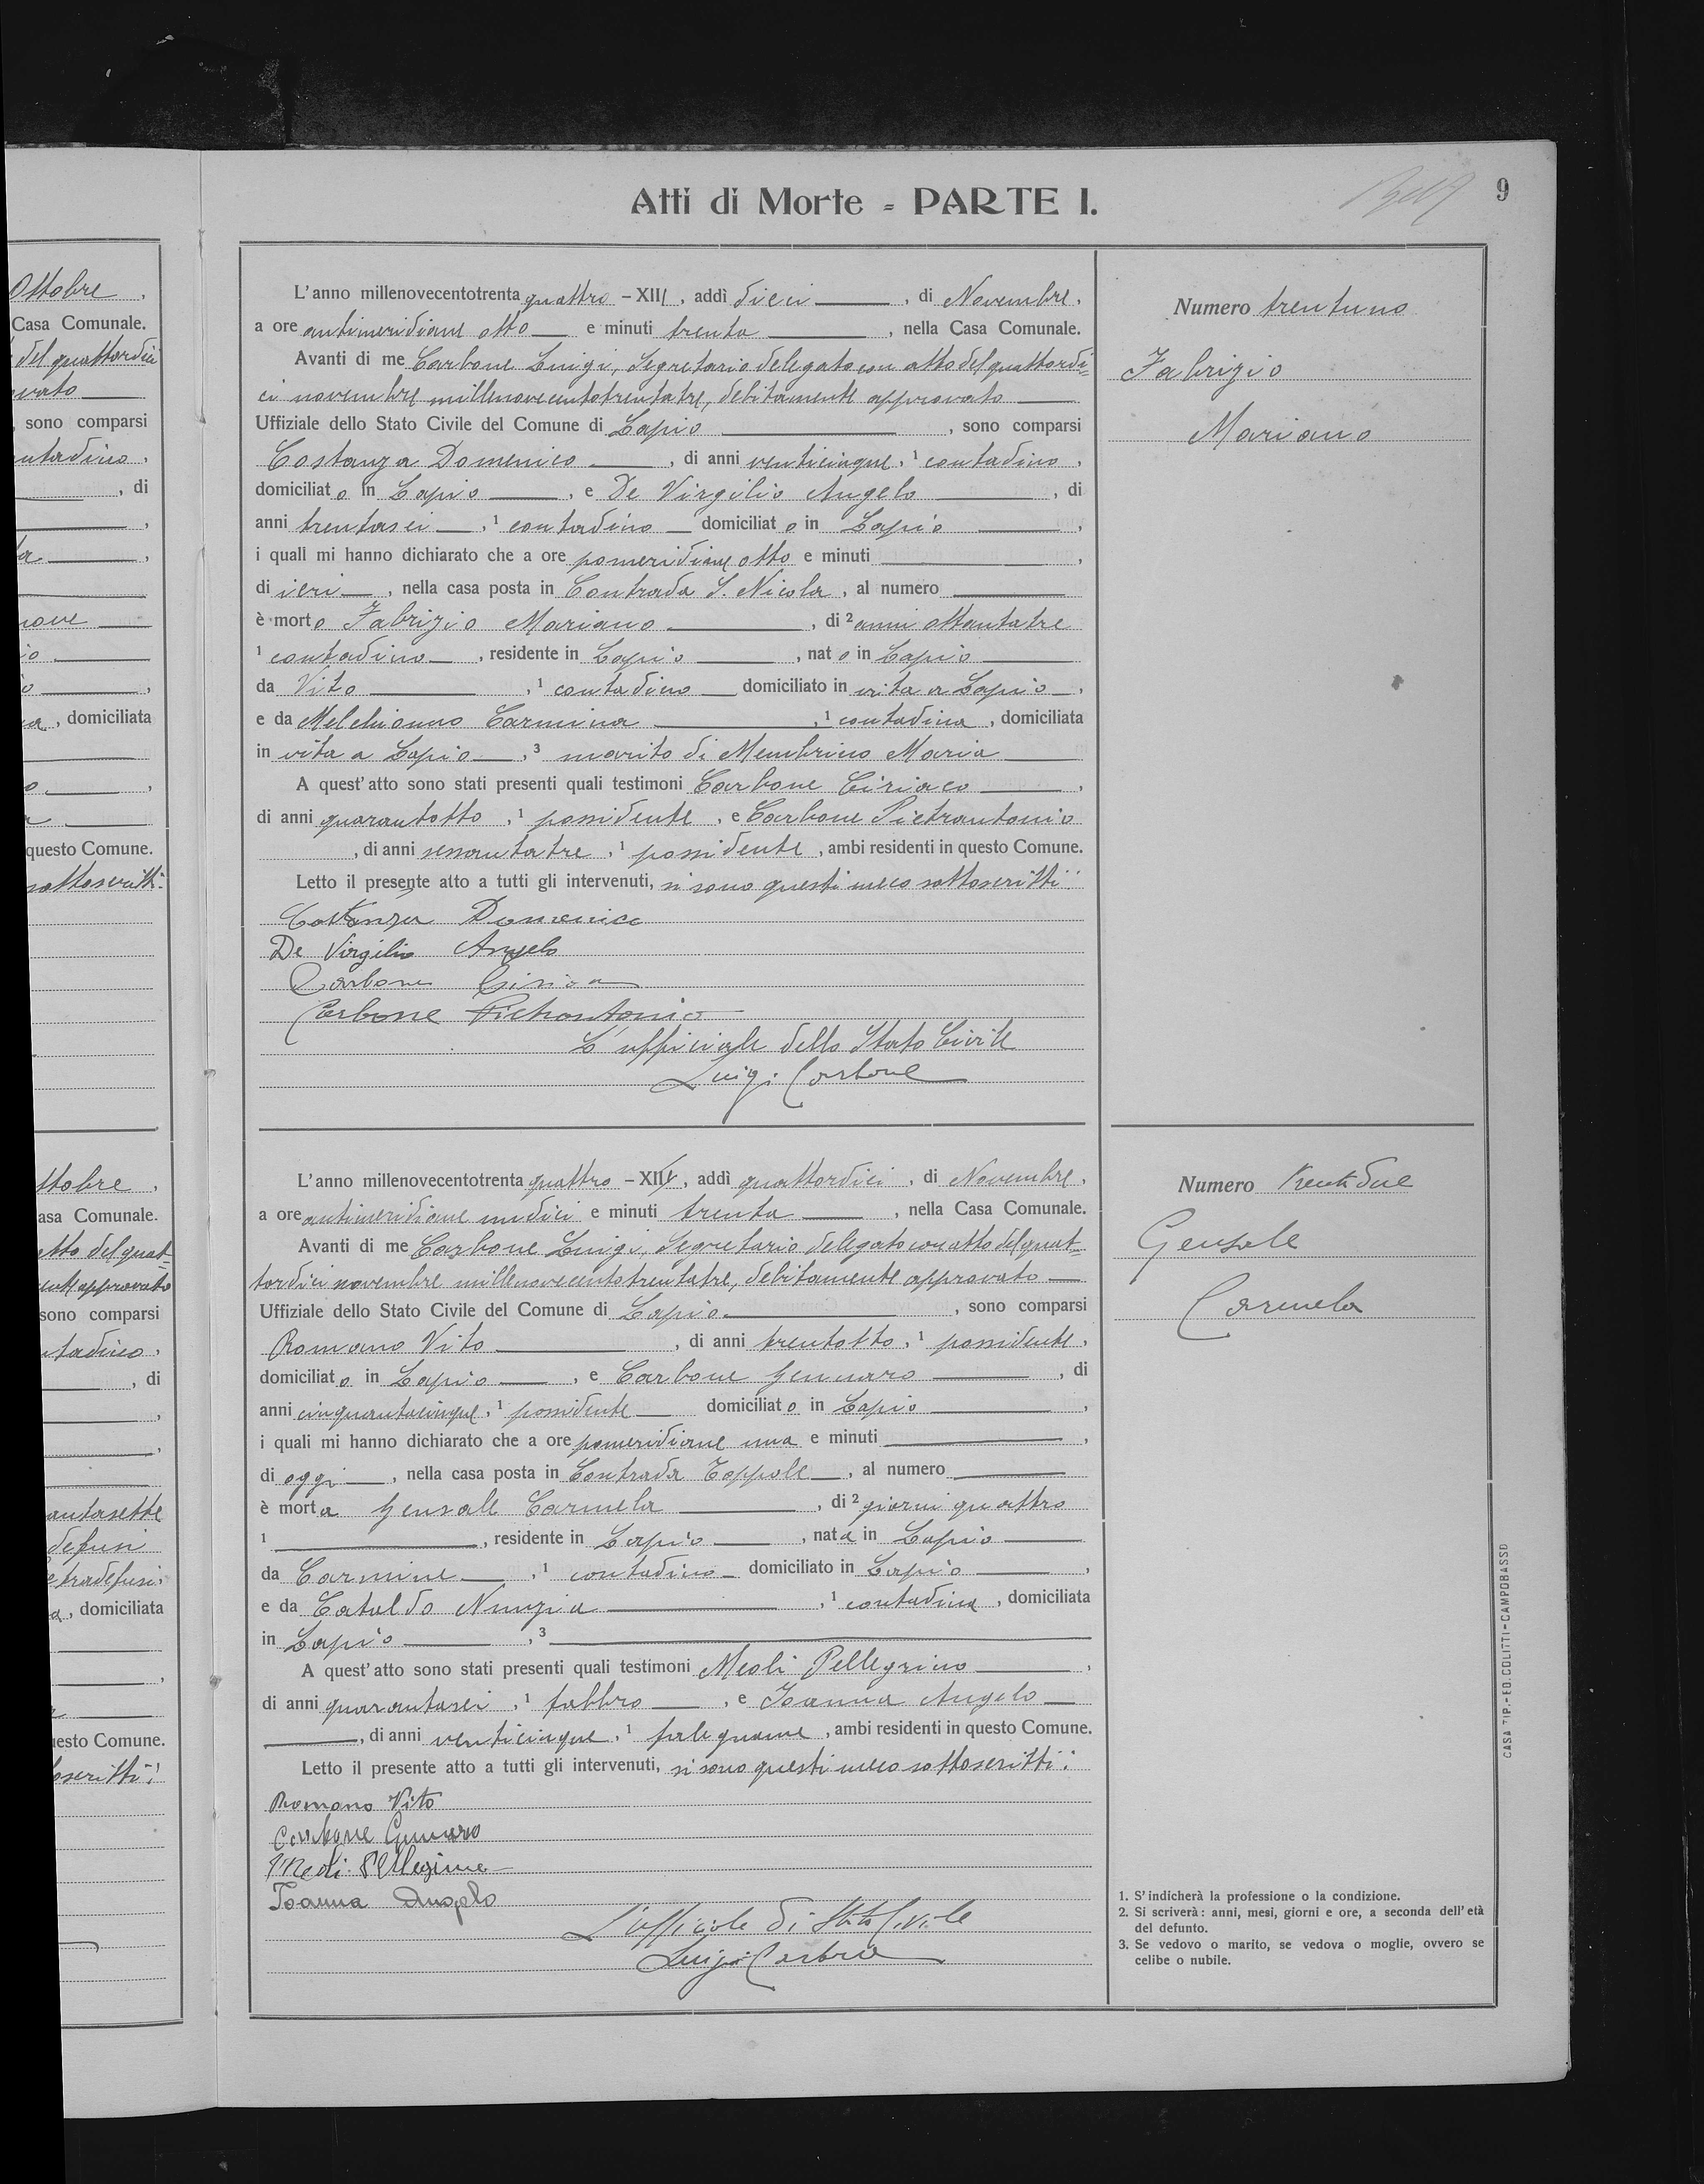 Ottobre,
Casa Comunale.
del quattordici
sono comparsi
, di
nove
, domiciliata
questo Comune.
sottoscritti.
ttobre,
asa Comunale.
atto del quat=
approvato
sono comparsi
, di
antasette
, domiciliata
esto Comune.
oscritti:
Atti di Morte - PARTE I.
9
L'anno millenovecentotrenta quattro - XIII, addì dieci, di Novembre,
a ore antimeridiane otto e minuti trenta, nella Casa Comunale.
Avanti di me Carbone Luigi, Segretario delegato con atto del quattordi=
ci novembre millenovecentotrentatre, debitamente approvato
Uffiziale dello Stato Civile del Comune di Lapio, sono comparsi
Costanza Domenico, di anni venticinque, 1 contadino,
domiciliato in Lapio, e De Virgilio Angelo, di
anni trentasei, 1 contadino domiciliato in Lapio,
i quali mi hanno dichiarato che a ore pomeridiane otto e minuti,
di ieri, nella casa posta in Contrada S. Nicola, al numero
è morto Fabrizio Mariano, di 2 anni ottantatre
1 contadino, residente in Lapio, nato in Lapio
da Vito, 1 contadino domiciliato in vita a Lapio,
e da Melchionno Carmina, 1 contadina, domiciliata
in vita a Lapio, 3 marito di Membrino Maria
A quest'atto sono stati presenti quali testimoni Carbone Ciriaco,
di anni quarantotto, 1 possidente, e Carbone Pietrantonio
, di anni sessantatre, 1 possidente, ambi residenti in questo Comune.
Letto il presente atto a tutti gli intervenuti, si sono questi meco sottoscritti:
Costanza Domenico
De Virgilio Angelo
Carbone
Carbone Pietrantonio
L'uffiziale dello Stato Civile
Luigi Carbone
Numero trentuno
Fabrizio
Mariano
L'anno millenovecentotrenta quattro - XIII, addì quattordici, di Novembre,
a ore antimeridiane undici e minuti trenta, nella Casa Comunale.
Avanti di me Carbone Luigi, Segretario delegato con atto del quat=
tordici novembre millenovecentotrentatre, debitamente approvato
Uffiziale dello Stato Civile del Comune di Lapio, sono comparsi
Romano Vito, di anni trentotto, 1 possidente,
domiciliato in Lapio, e Carbone Gennaro, di
anni cinquantacinque, 1 possidente domiciliato in Lapio,
i quali mi hanno dichiarato che a ore pomeridiane una e minuti,
di oggi, nella casa posta in Contrada Toppole, al numero
è morta Gensale Carmela, di 2 giorni quattro
1, residente in Lapio, nata in Lapio
da Carmine, 1 contadino domiciliato in Lapio,
e da Cataldo Nunzia, 1 contadina, domiciliata
in Lapio, 3
A quest'atto sono stati presenti quali testimoni Meoli Pellegrino,
di anni quarantasei, 1 fabbro, e Ioanna Angelo
, di anni venticinque, 1 falegname, ambi residenti in questo Comune.
Letto il presente atto a tutti gli intervenuti, si sono questi meco sottoscritti:
Romano Vito
Carbone Gennaro
Meoli Pellegrino
Ioanna Angelo
L'ufficiale di Stato Civile
Luigi Carbone
Numero trentadue
Gensale
Carmela
1. S'indicherà la professione o la condizione.
2. Si scriverà: anni, mesi, giorni e ore, a seconda dell'età
del defunto.
3. Se vedovo o marito, se vedova o moglie, ovvero se
celibe o nubile.
CASA TIP.-ED. COLITTI-CAMPOBASSO